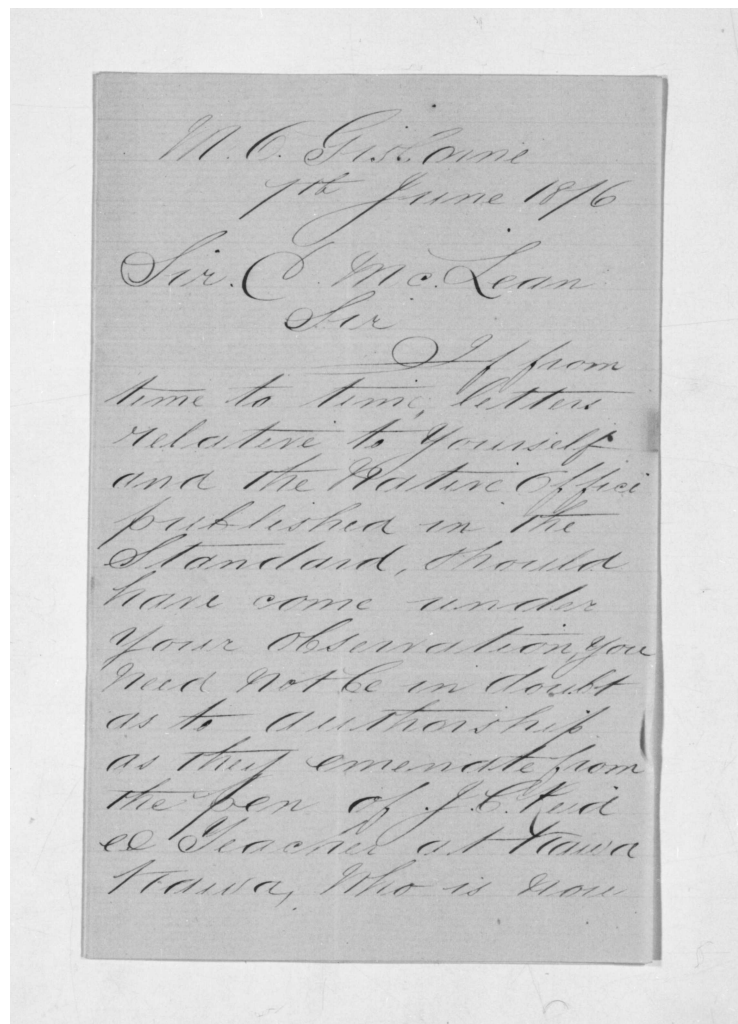 M. O. Gisborne
7th June 1876
Sir. D. Mc. Lean
Sir
If from
time to time, letters
relative to Yourself
and the Native Office
published in the
Standard, should
have come under
your observation, you
need not be in doubt
as to authorship
as they emenate from
the pen of J. C. Reid
ex Teacher at Kawa
Kawa, Who is now